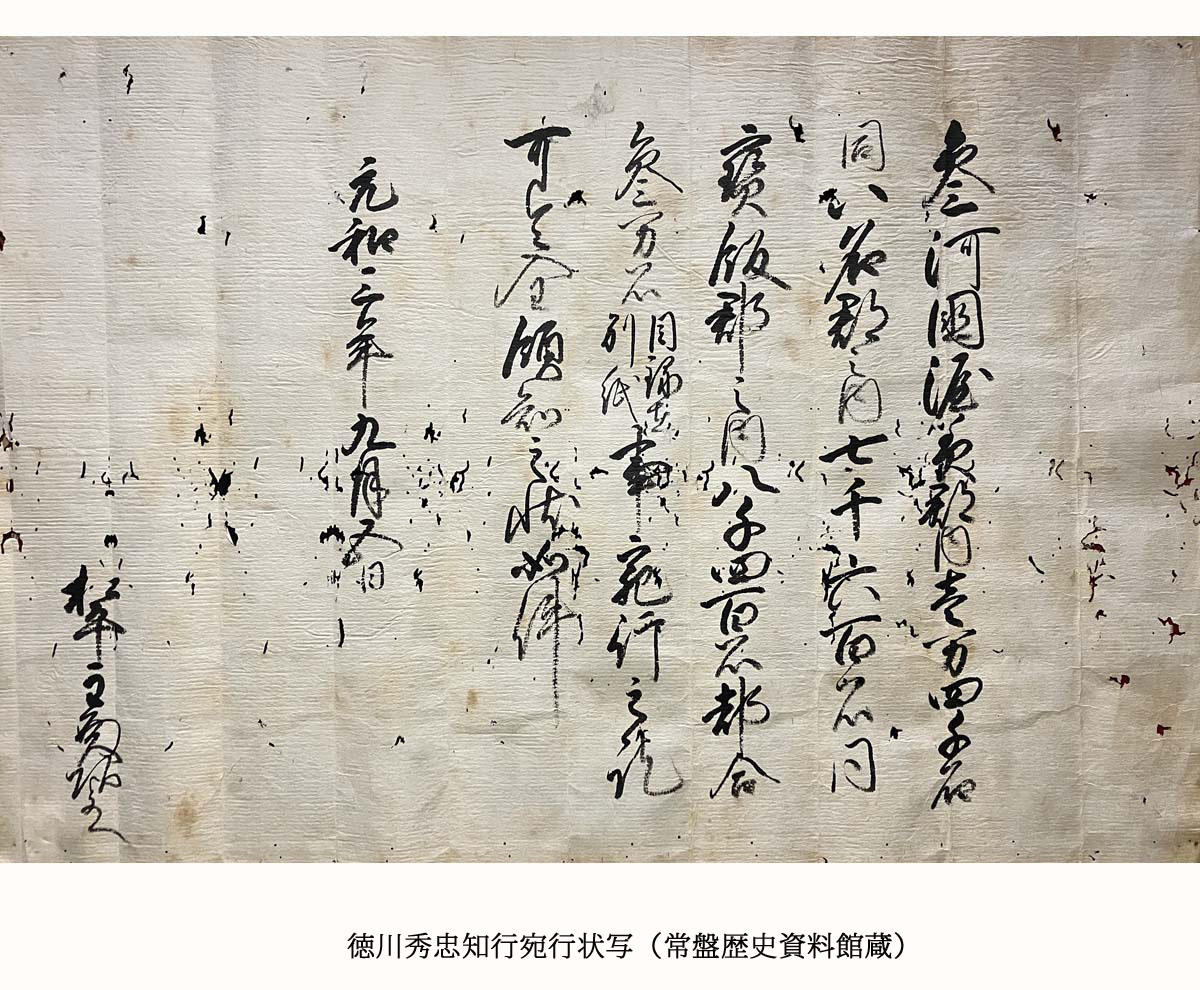 参河国渥美郡内壱万四千石
同八名郡之内七千六百石同
寳飯郡之内八千四百石都合
参万石目録在別紙事宛行之訖
可令全領知之状如件
元和三年九月五日
松平主殿頭とのへ
徳川秀忠知行宛行状写（常盤歴史資料館蔵）